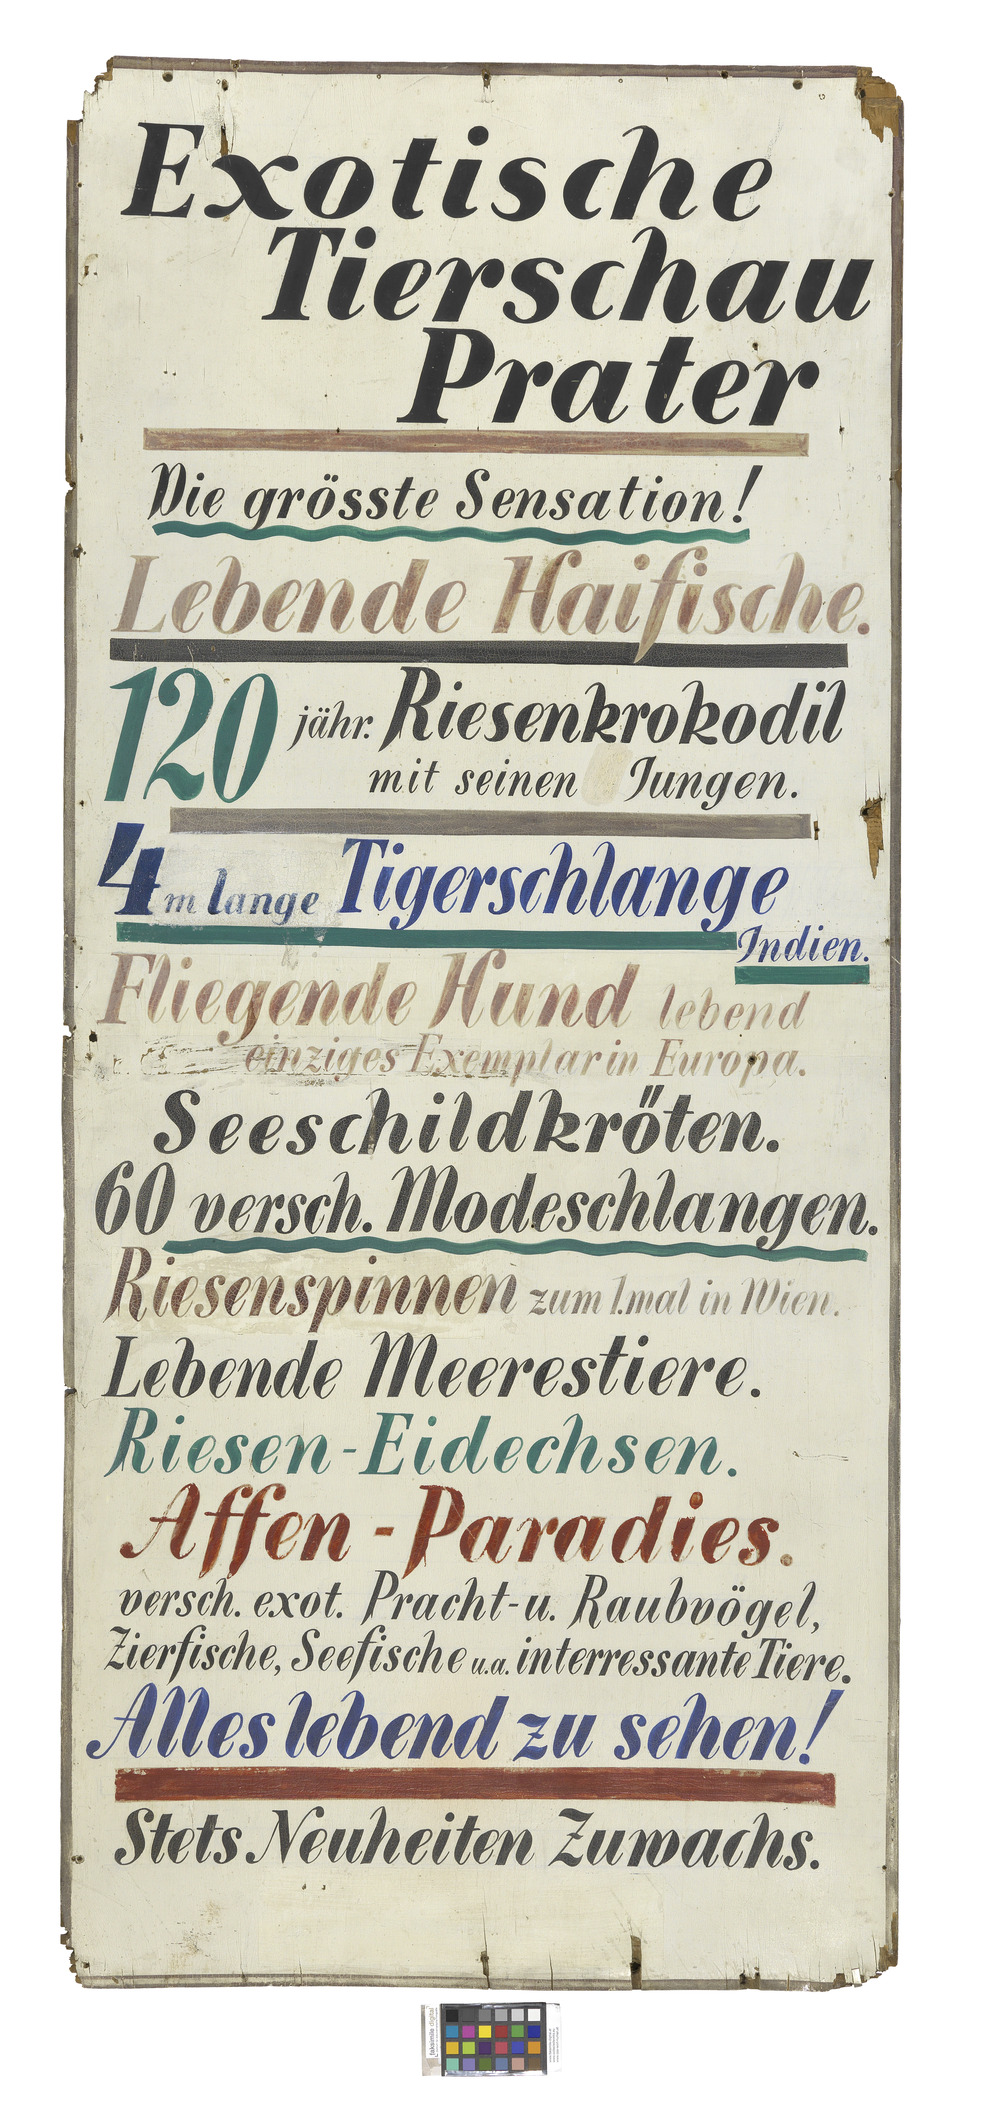 Exotische
Tierschau
Prater
Die grösste Sensation!
Lebende Haifische.
120 jähr. Riesenkrokodil
mit seinen Jungen.
4 m lange Tigerschlange
Indien.
Fliegende Hund lebend
einziges Exemplar in Europa.
Seeschildkröten.
60 versch. Modeschlangen.
Riesenspinnen zum 1.mal in Wien.
Lebende Meerestiere.
Riesen-Eidechsen.
Affen-Paradies.
versch. exot. Pracht- u. Raubvögel,
Zierfische, Seefische u.a. interressante Tiere.
Alles lebend zu sehen!
Stets Neuheiten Zuwachs.
faksimile digital